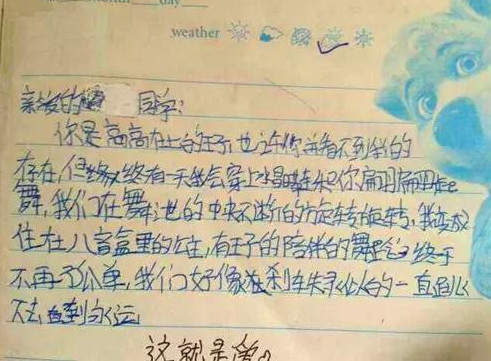 day
weather
亲爱的 同学:
你是高高在上的王子,也许你并看不到我的
存在,但终有一天我会穿上水晶鞋和你翩翩起
舞,我们在舞池的中央不断的旋转旋转,我变成
住在八音盒里的公主,有王子的陪伴的舞会终于
不再孤单,我们好像在刹车失灵似的一直
下去 直到永远
这就是爱。